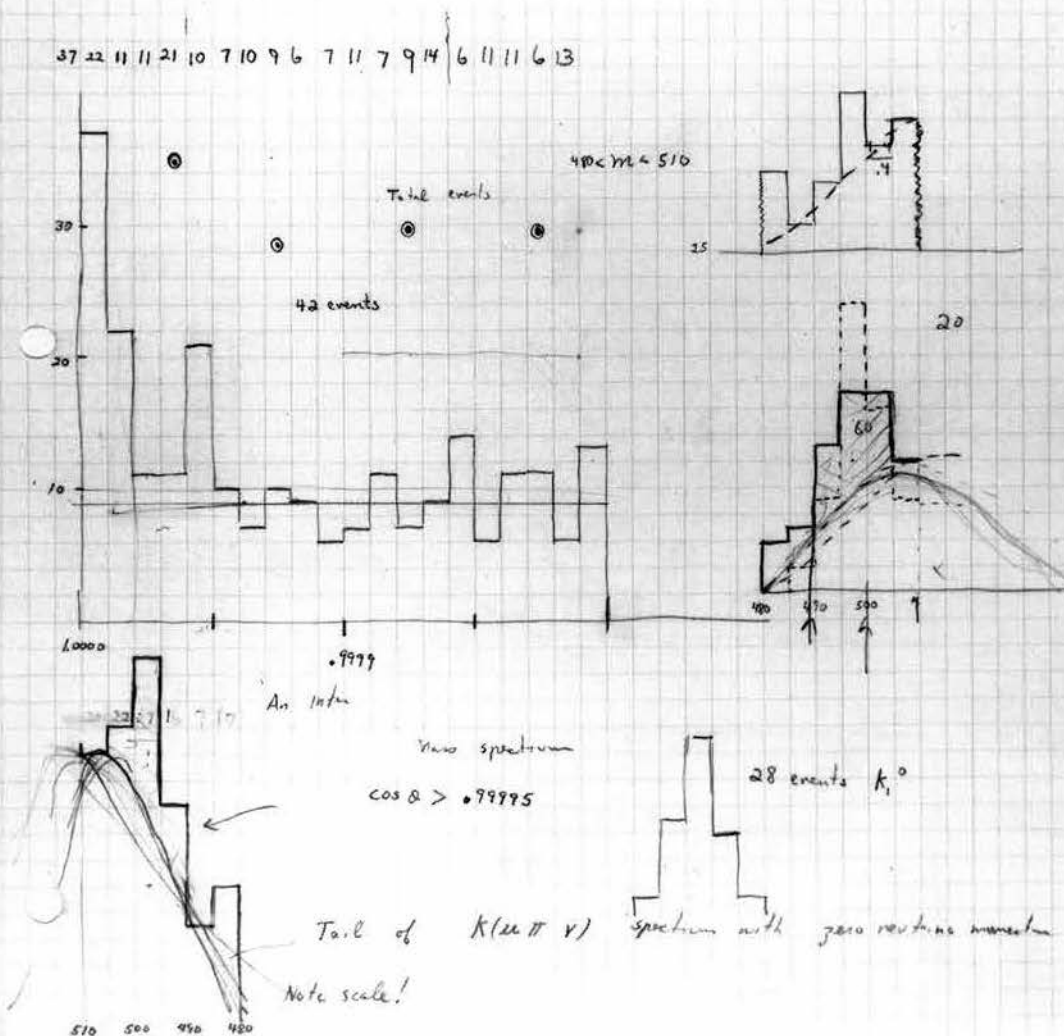 37 22 11 11 21 10 7 10 9 6 7 11 7 9 14 6 11 11 6 13
480 < m < 510
.4
Total events
30
25
42 events
20
20
60
10
480 490 500
1.0000
.9999
An
22 27
Mass spectrum
cos θ > .99995
28 events K₁⁰
Tail of K(μ π ν) spectrum with zero neutrino momentum
Note scale!
510 500 490 480